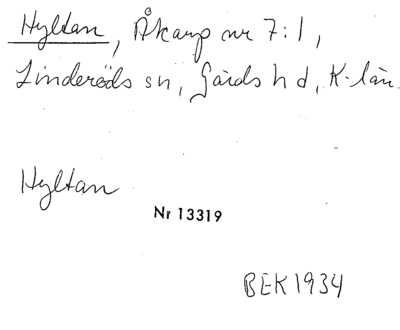 Hyltan, Åkarp nr 7:1,
Linderöds sn, Gärds hd, K-län.
Hyltan
Nr 13319
BEK 1934